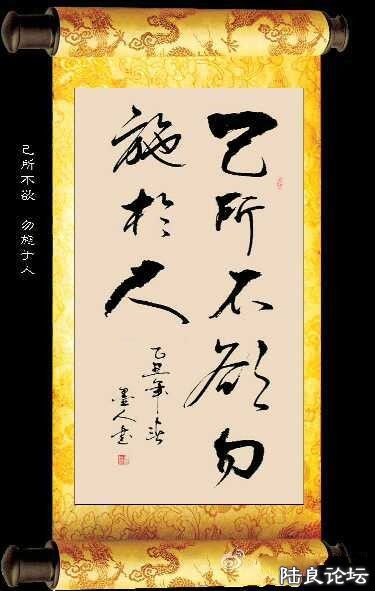 己所不欲勿
施於人
丑年
墨人書
己所不欲 勿施于人
陆良论坛